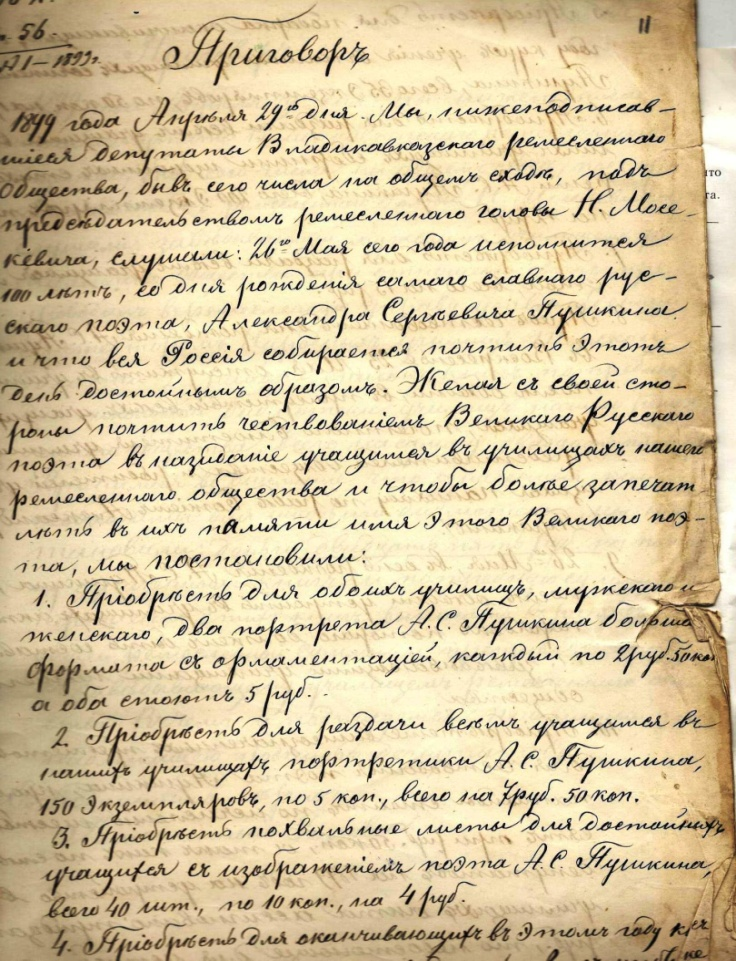 56.
11
1899 г.
Приговоръ
1899 года Апрѣля 29го дня. Мы, нижеподписав-
шіеся депутаты Владикавказскаго ремесленнаго
Общества, бывъ сего числа на общемъ сходѣ, подъ
предсѣдательствомъ ремесленнаго головы Н. Мосе-
кевича, слушали: 26го Мая сего года исполнится
100 лѣтъ, со дня рожденія самаго славнаго рус-
скаго поэта, Александра Сергѣевича Пушкина
и что вся Россія собирается почтить этотъ
день достойнымъ образомъ. Желая съ своей сто-
роны почтить чествованіемъ Великаго Русскаго
поэта въ назиданіе учащимся въ училищахъ нашего
ремесленнаго общества и чтобы болѣе запечат-
лѣть въ ихъ памяти имя этого Великаго поэ-
та, мы постановили:
1. Пріобрѣсть для обоихъ училищъ, мужскаго и
женскаго, два портрета А.С. Пушкина
формата съ орнаментаціей, каждый по 2 руб. 50 коп
а оба стоютъ 5 руб.
2. Пріобрѣсть для раздачи всѣмъ учащимся въ
нашихъ училищахъ портретики А.С. Пушкина,
150 экземпляровъ, по 5 коп., всего на 7 руб. 50 коп.
3. Пріобрѣсть похвальные листы для достойныхъ
учащихся съ изображеніемъ поэта А.С. Пушкина,
всего 40 шт., по 10 коп., на 4 руб.
4. Пріобрѣсть для оканчивающихъ въ этомъ году
что
та.